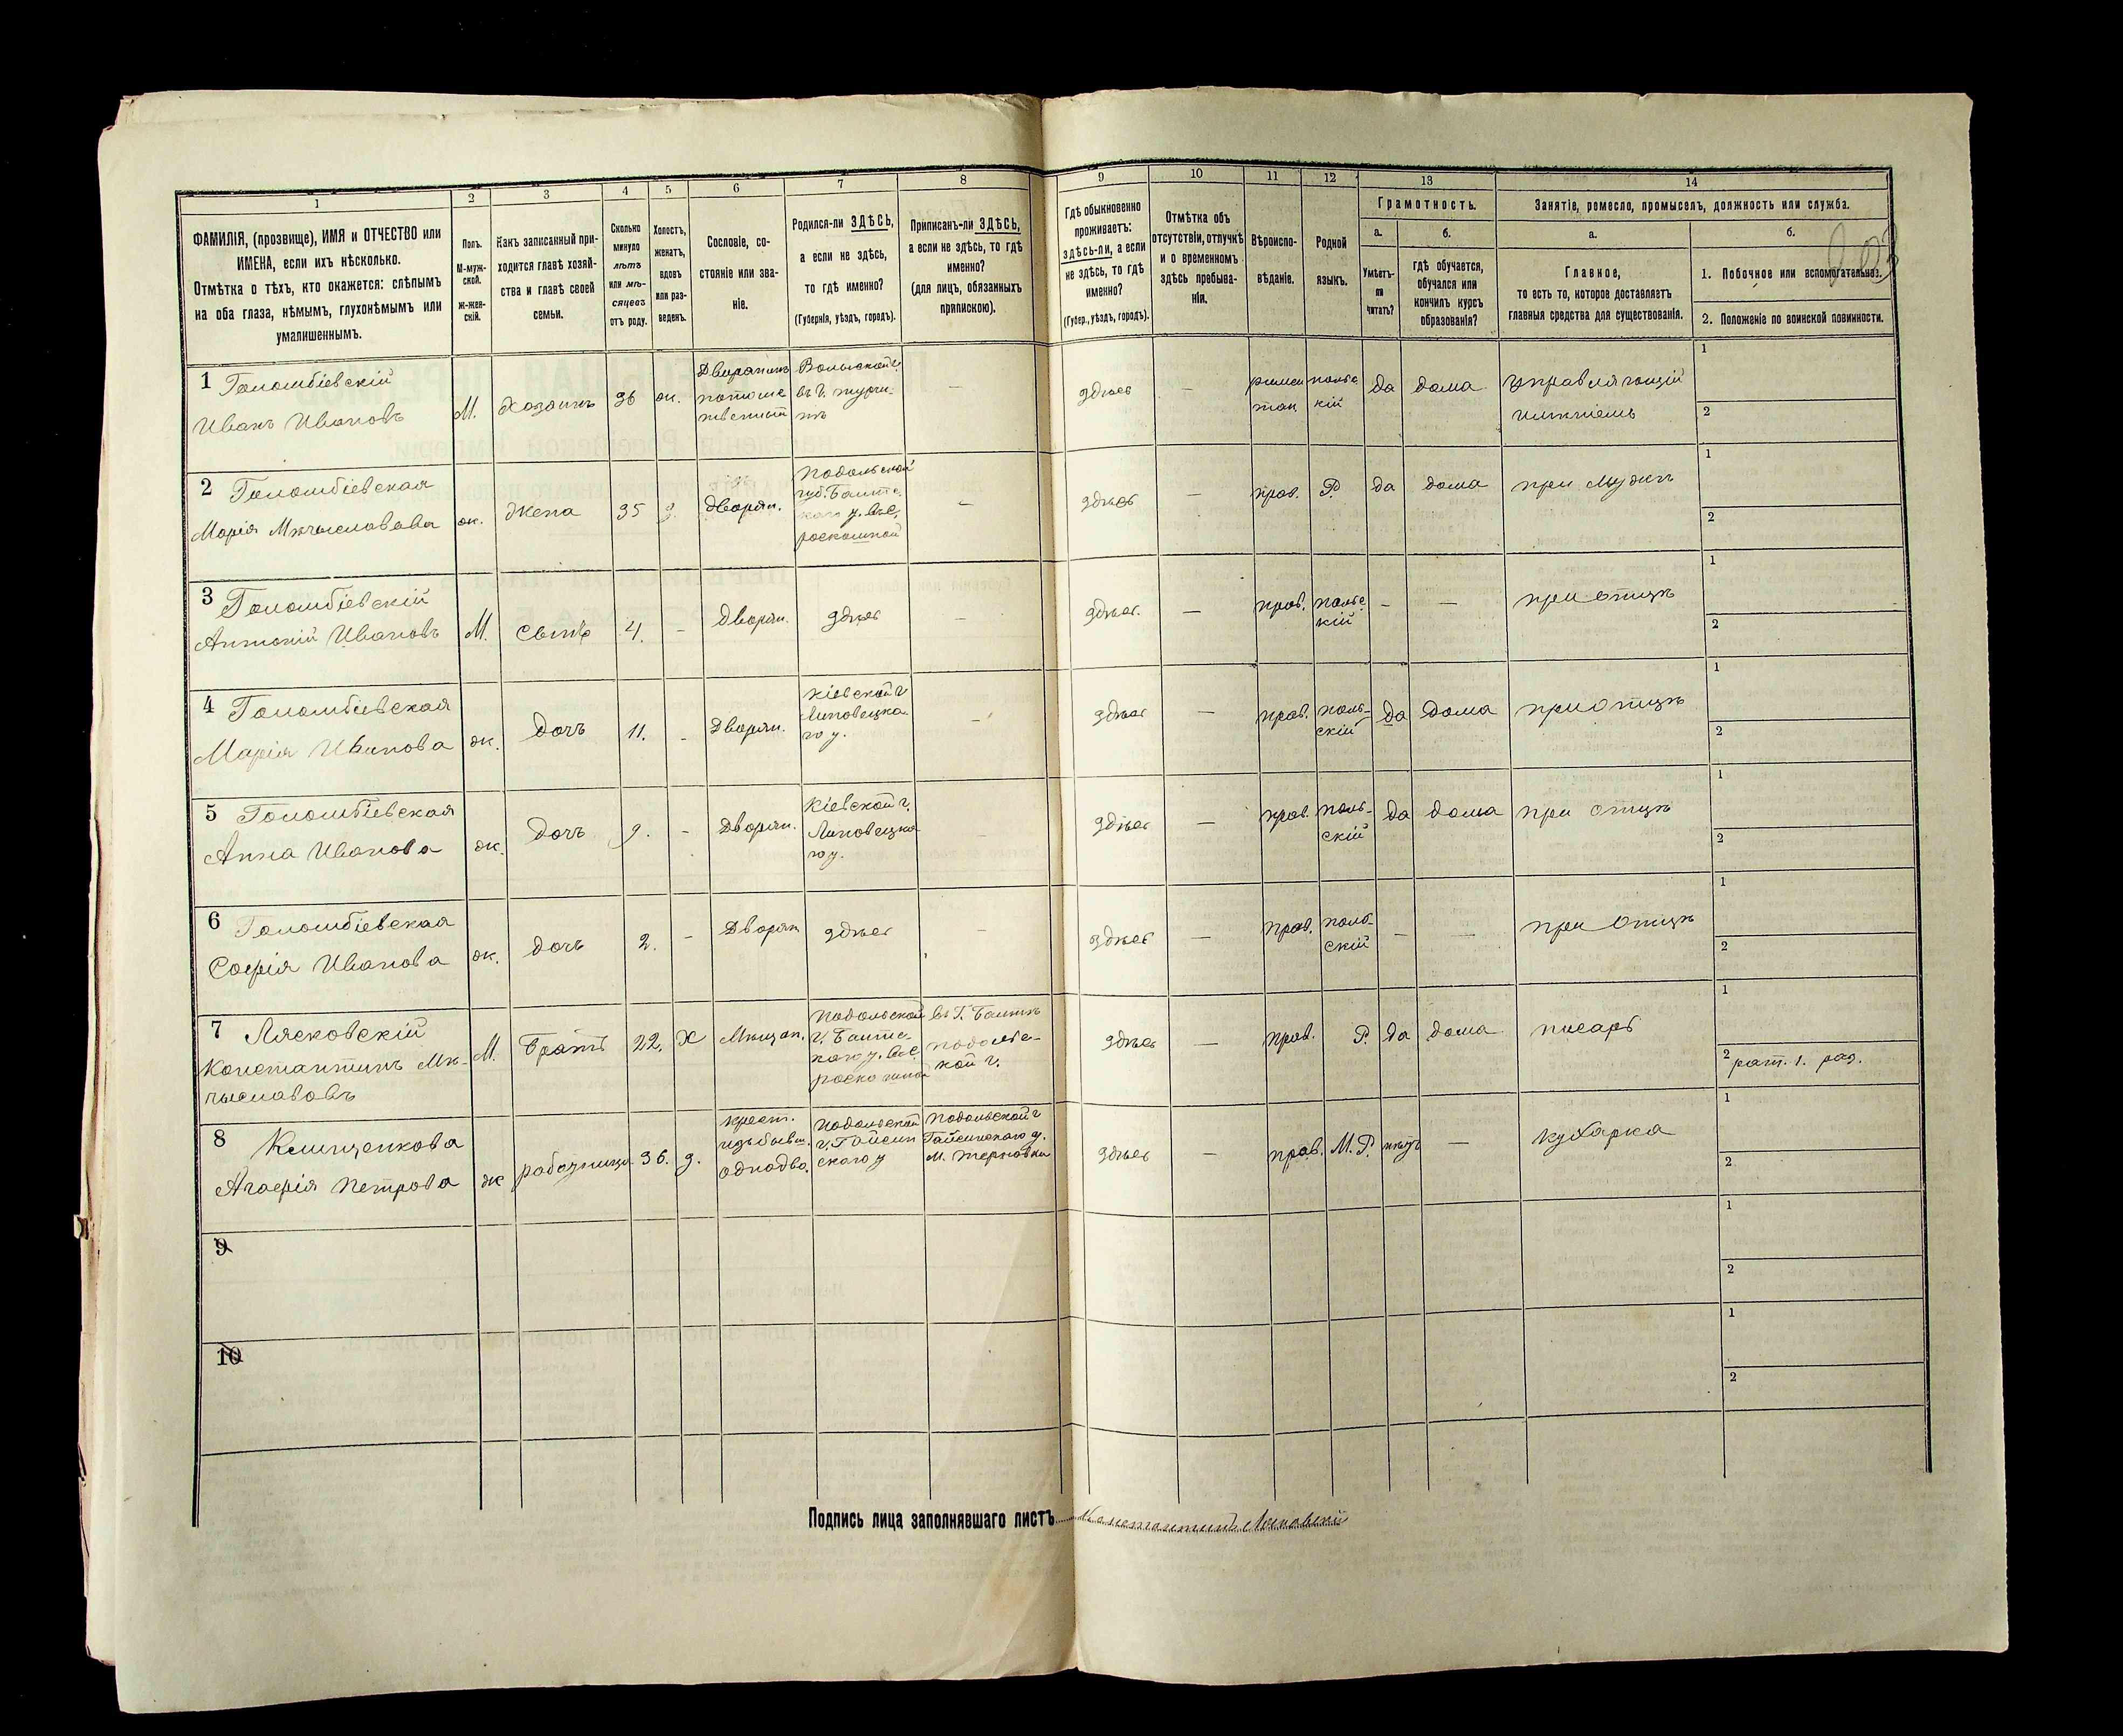 1 2 3 4 5 6 7 8 9 10 11 12 13 14
ФАМИЛІЯ, (прозвище), ИМЯ и ОТЧЕСТВО или
ИМЕНА, если ихъ нѣсколько.
Отмѣтка о тѣхъ, кто окажется: слѣпымъ
на оба глаза, нѣмымъ, глухонѣмымъ или
умалишеннымъ.
Полъ.
М-муж-
ской.
Ж-жен-
скій.
Какъ записанный при-
ходится главѣ хозяй-
ства и главѣ своей
семьи.
Сколько
минуло
лѣтъ
или мѣ-
сяцевъ
отъ роду.
Холостъ,
женатъ,
вдовъ
или раз-
веденъ.
Сословіе, со-
стояніе или зва-
ніе.
Родился-ли ЗДѢСЬ,
а если не здѣсь,
то гдѣ именно?
(Губернія, уѣздъ, городъ).
Приписанъ-ли ЗДѢСЬ,
а если не здѣсь, то гдѣ
именно?
(для лицъ, обязанныхъ
припискою).
Гдѣ обыкновенно
проживаетъ:
здѣсь-ли, а если
не здѣсь, то гдѣ
именно?
(Губер., уѣздъ, городъ).
Отмѣтка объ
отсутствіи, отлучкѣ
и о временномъ
здѣсь пребыва-
ніи.
Вѣроиспо-
вѣданіе.
Родной
языкъ.
Грамотность.
а.
Умѣетъ-
ли
читать?
б.
гдѣ обучается,
обучался или
кончилъ курсъ
образованія?
Занятіе, ремесло, промыселъ, должность или служба.
а.
Главное,
то есть то, которое доставляетъ
главныя средства для существованія.
б.
1. Побочное или вспомогательное.
2. Положеніе по воинской повинности.
1 Голомбіевскій
Иванъ Ивановъ
М.
Хозяинъ
36
ж.
Дворянинъ
потомс
твенный
Волынской г.
—
здѣсь
—
польс
кій
да
дома
управляющій
имѣніемъ
1
2
2 Голомбіевская
Марія Мечиславова
ж.
Жена
35
з.
Дворян.
Подольской
губ. Балтс.
каго у. въ с.
роскошной
—
здѣсь
—
прав.
Р.
да
дома
при мужѣ
1
2
3 Голомбіевскій
Антоній Ивановъ
М.
Сынъ
4.
-
Дворян.
здѣсь
—
здѣсь.
—
прав.
польс.
кій
—
—
при отцѣ
1
2
4 Голомбіевская
Марія Иванова
ж.
Дочъ
11.
-
Дворян.
Кіевской г
Липовецка.
го у.
—
здѣсь
—
прав.
поль-
скій
да
дома
при отцѣ
1
2
5 Голомбіевская
Анна Иванова
ж.
дочъ
9.
-
Дворян.
Кіевской г.
Липовецка
го у.
—
здѣсь
—
прав.
поль-
скій
да
дома
при отцѣ
1
2
6 Голомбіевская
Софія Иванова
ж.
дочъ
2.
-
Дворян
здѣсь
—
здѣсь
—
прав.
поль-
скій
—
—
при отцѣ
1
2
7 Лясковскій
Константинъ Ме-
числавовъ
М.
Братъ
22.
Х
Мѣщан.
Подольской
г. Балтс.
каго у. въ с.
роскошной
въ г. Балтѣ
подольс-
кой г.
здѣсь
—
прав.
Р.
да
дома
писарь
1
2 рат. 1. раз.
8 Клищенкова
Агафія Петрова
ж
работница
36.
з.
крест.
изъ бывш.
однодво.
Подольской
г. Гайсин
скаго у
Подольской г
Гайсинскаго у.
м. Терновка
здѣсь
—
прав.
М. Р.
нѣтъ
—
кухарка
1
2
9
1
2
10
1
2
Подпись лица заполнявшаго листъ Константинъ Лясковскій